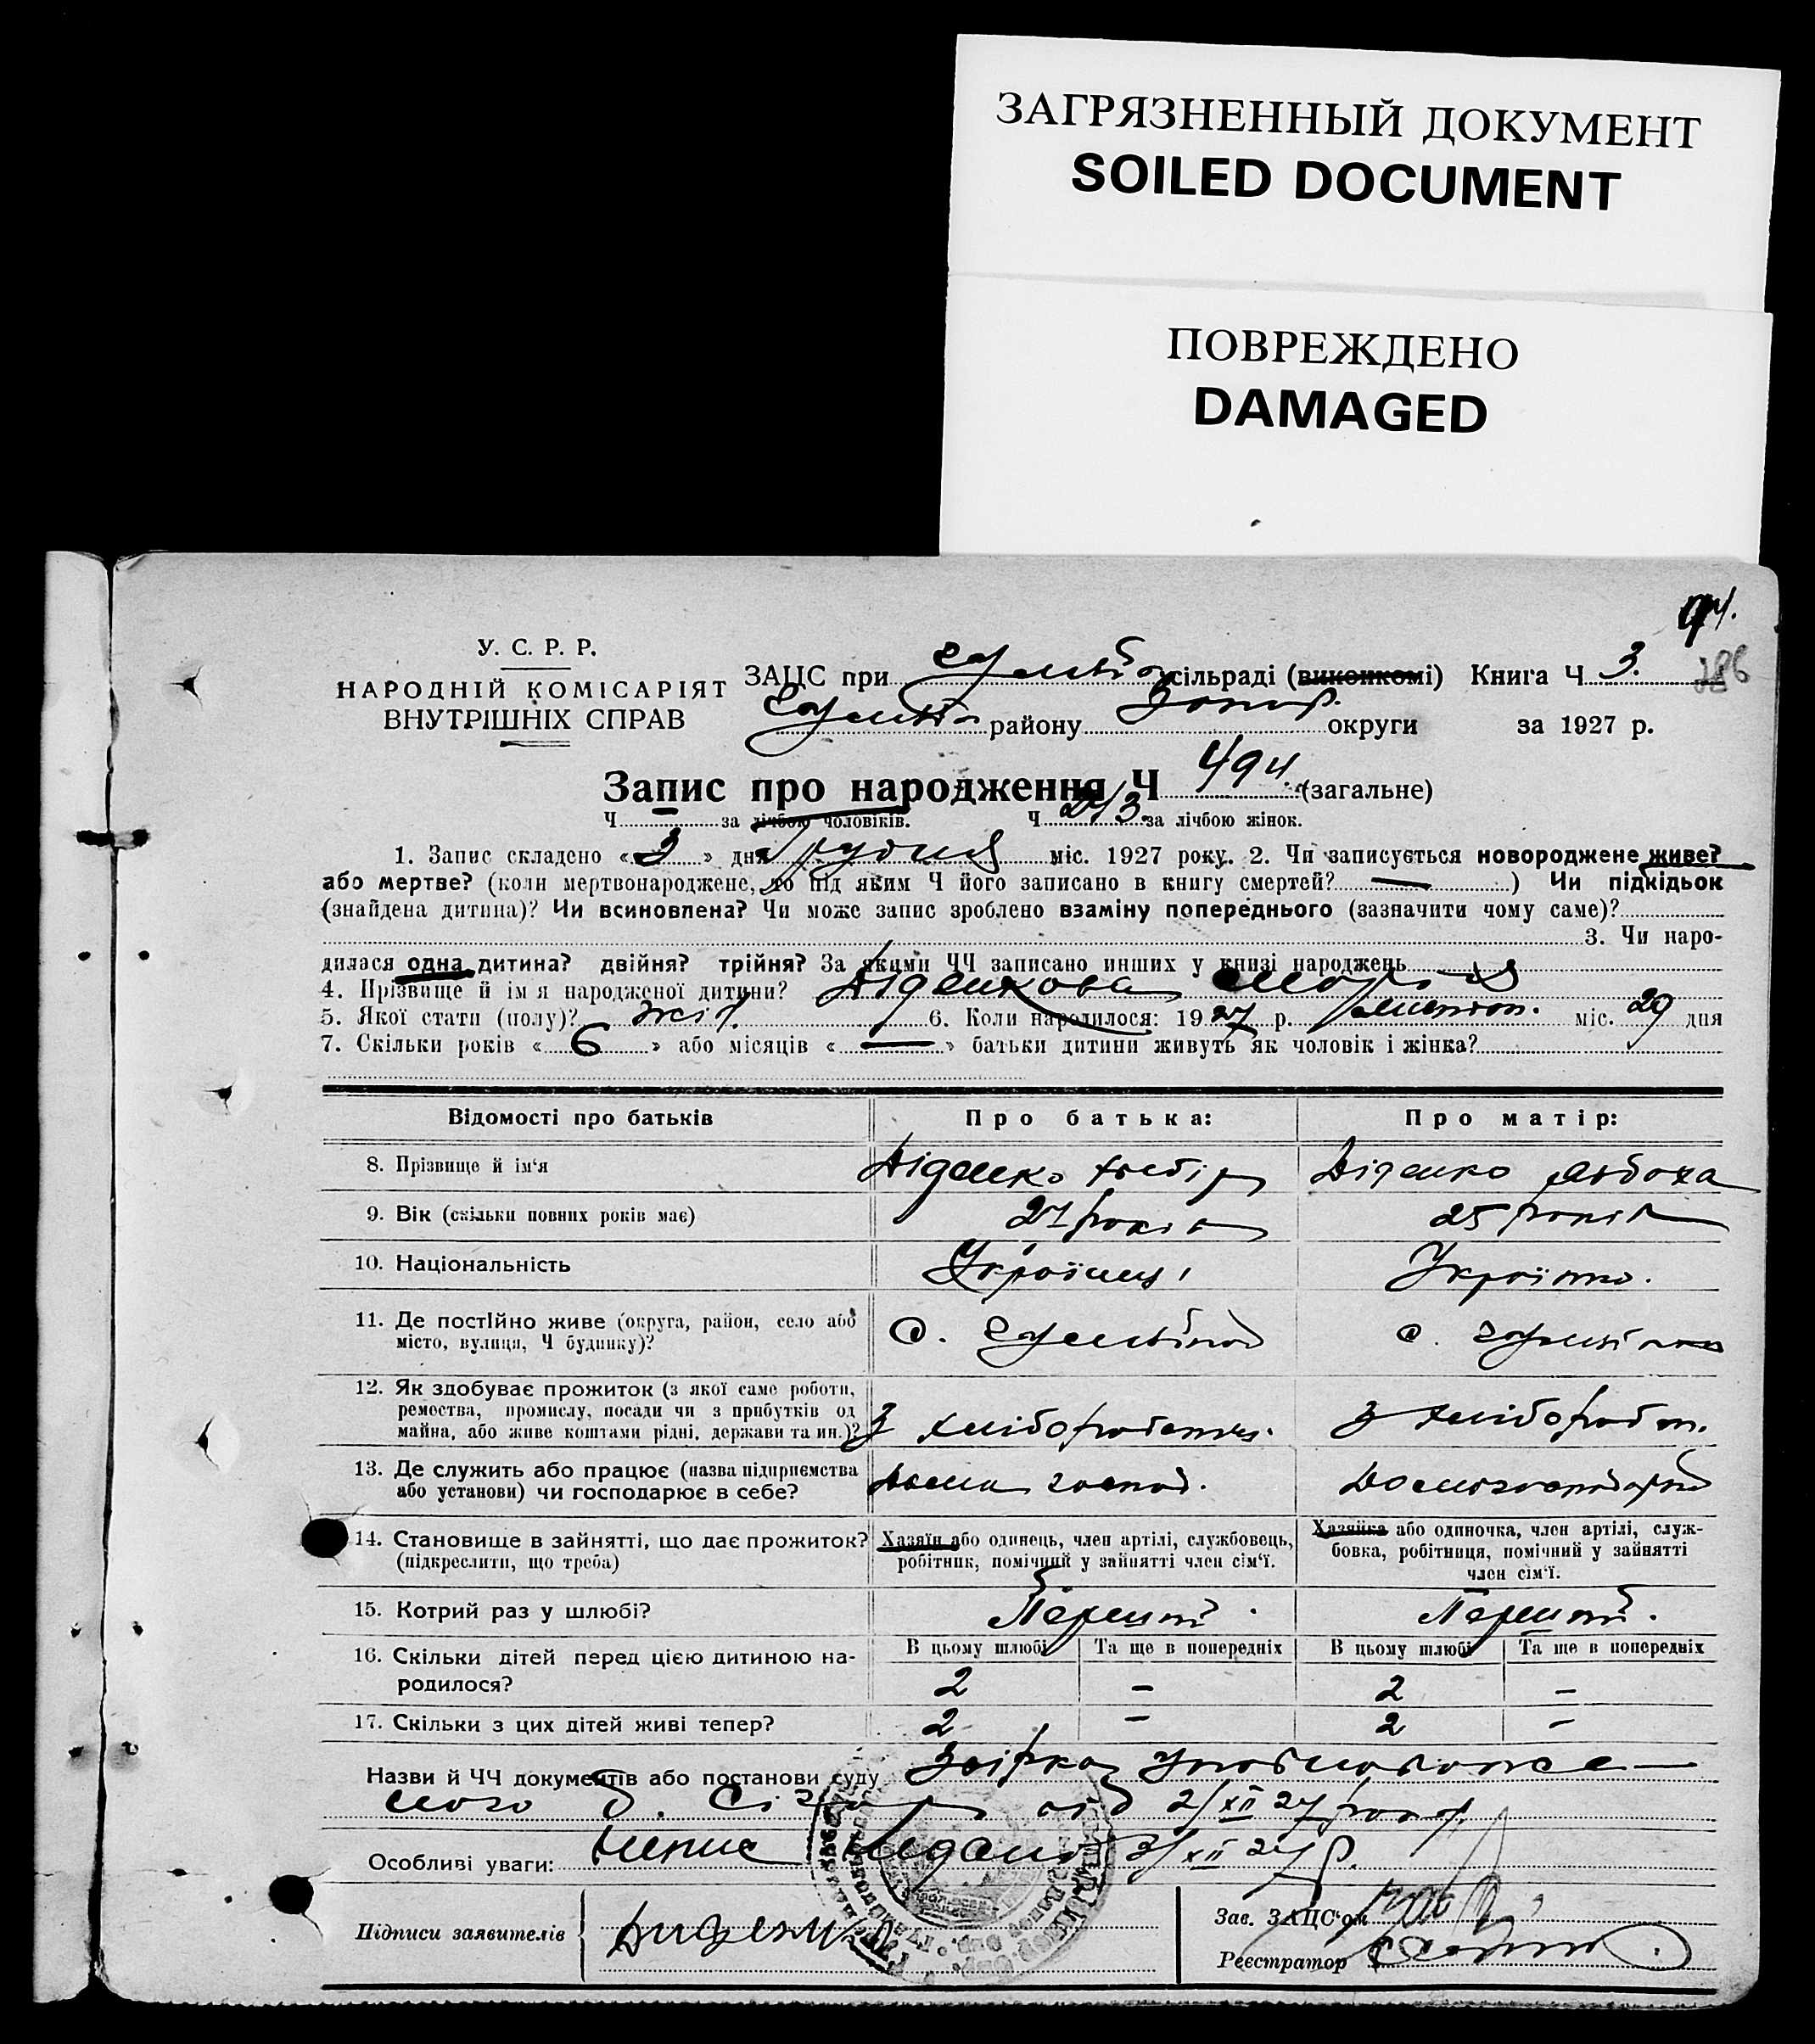 ЗАГРЯЗНЕННЫЙ ДОКУМЕНТ
SOILED DOCUMENT
ПОВРЕЖДЕНО
DAMAGED
У. С. Р. Р.
НАРОДНІЙ КОМІСАРІЯТ
ВНУТРІШНІХ СПРАВ
ЗАЦС при сільраді (виконкомі) Книга Ч 3.
286
району Запор. округи за 1927 р.
Запис про народження Ч 494. (загальне)
Ч — за лічбою чоловіків. Ч 213 за лічбою жінок.
1. Запис складено « 3 » дня Грудня міс. 1927 року. 2. Чи записується новороджене живе?
або мертве? (коли мертвонароджене, то під яким Ч його записано в книгу смертей? — ) Чи підкідьок
(знайдена дитина)? Чи всиновлена? Чи може запис зроблено взаміну попереднього (зазначити чому саме)?
3. Чи наро-
дилася одна дитина? двійня? трійня? За якими ЧЧ записано инших у книзі народжень —
4. Прізвище й імʼя народженої дитини? Діденкова Марія
5. Якої стати (полу)? жін. 6. Коли народилося: 1927 р. листоп. міс. 29 дня
7. Скільки років « 6 » або місяців « — » батьки дитини живуть як чоловік і жінка?
Відомості про батьків Про батька: Про матір:
8. Прізвище й ім'я Діденко Діденко
9. Вік (скільки повних років має) 27 років 25 років
10. Національність Українець Українка.
11. Де постійно живе (округа, район, село або
місто, вулиця, Ч будинку)? с. с.
12. Як здобуває прожиток (з якої саме роботи,
ремества, промислу, посади чи з прибутків од
майна, або живе коштами рідні, держави та ин.)? З хліборобства. З хлібороб.
13. Де служить або працює (назва підприємства
або установи) чи господарює в себе? Дома господ.
14. Становище в зайнятті, що дає прожиток?
(підкреслити, що треба)
Хазяїн або одинець, член артілі, службовець,
робітник, помічний у зайнятті член сім'ї.
Хазяйка або одиночка, член артілі, служ-
бовка, робітниця, помічний у зайнятті
член сім'ї.
15. Котрий раз у шлюбі? Перший. Перший.
В цьому шлюбі Та ще в попередніх В цьому шлюбі Та ще в попередніх
16. Скільки дітей перед цією дитиною на-
родилося? 2 – 2 –
17. Скільки з цих дітей живі тепер? 2 – 2 –
Назви й ЧЧ документів або постанови суду Уповноваже-
ного від 2/XII 27 року.
Особливі уваги: 3/XII 27 р.
Підписи заявителів
Зав. ЗАЦС'ом
Реєстратор